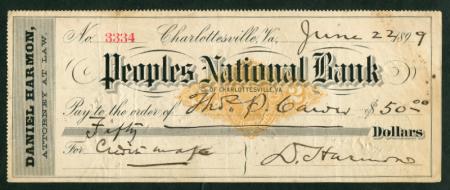 DANIEL HARMON,
ATTORNEY AT LAW.
No. 3334 Charlottesville, Va, June 22 1899
Peoples National Bank
OF CHARLOTTESVILLE, VA.
Pay to the order of Thos. P. $50.00
Fifty Dollars
For Credit D. Harmon